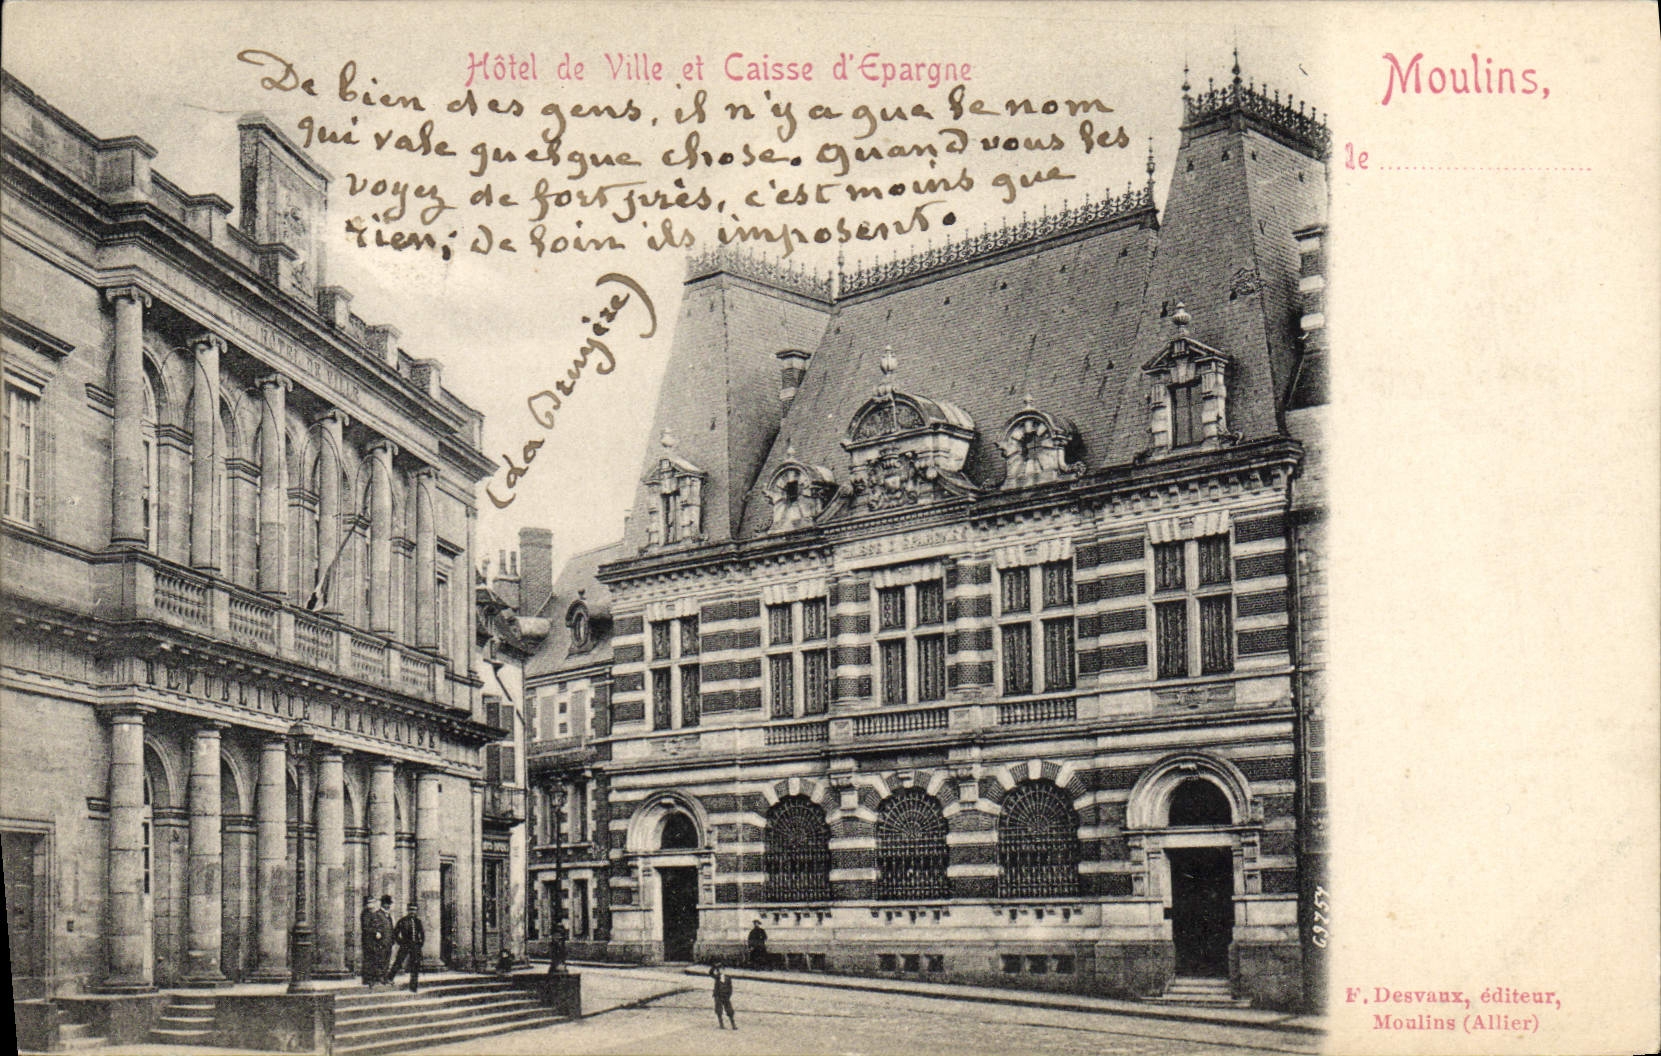 Hôtel de Ville et Caisse d'Epargne
Moulins,
le
De bien des gens, il n'y a que le nom
qui vale quelque chose. Quand vous les
voyez de fort près, c'est moins que
rien; de loin ils imposent.
(La Bruyère)
HÔTEL DE VILLE
RÉPUBLIQUE FRANÇAISE
CAISSE D'EPARGNE
69754
F. Desvaux, éditeur,
Moulins (Allier)